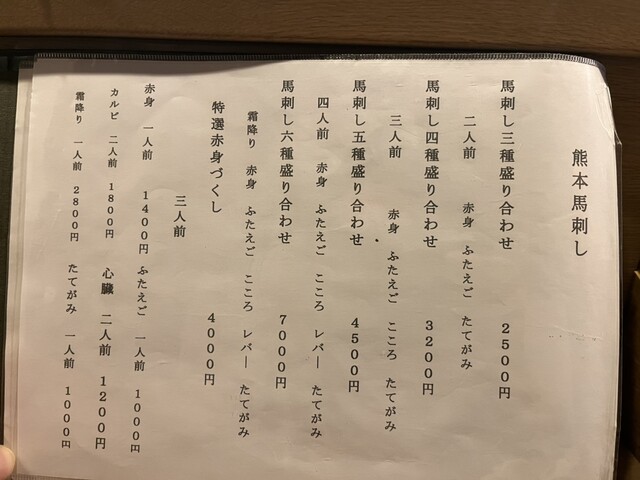 熊本馬刺し
馬刺し三種盛り合わせ 2500円
二人前 赤身 ふたえご たてがみ
馬刺し四種盛り合わせ 3200円
三人前 赤身 ふたえご こころ たてがみ
馬刺し五種盛り合わせ 4500円
四人前 赤身 ふたえご こころ レバー たてがみ
馬刺し六種盛り合わせ 7000円
霜降り 赤身 ふたえご こころ レバー たてがみ
特選赤身づくし 4000円
三人前
赤身 一人前 1400円 ふたえご 一人前 1000円
カルビ 二人前 1800円 心臓 二人前 1200円
霜降り 一人前 2800円 たてがみ 一人前 1000円